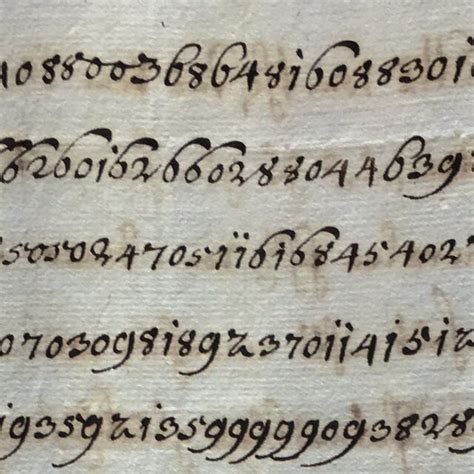 40880036864816088301
662601626602880446392
505024705116168454027
070309818923701141512
19359213599999093828